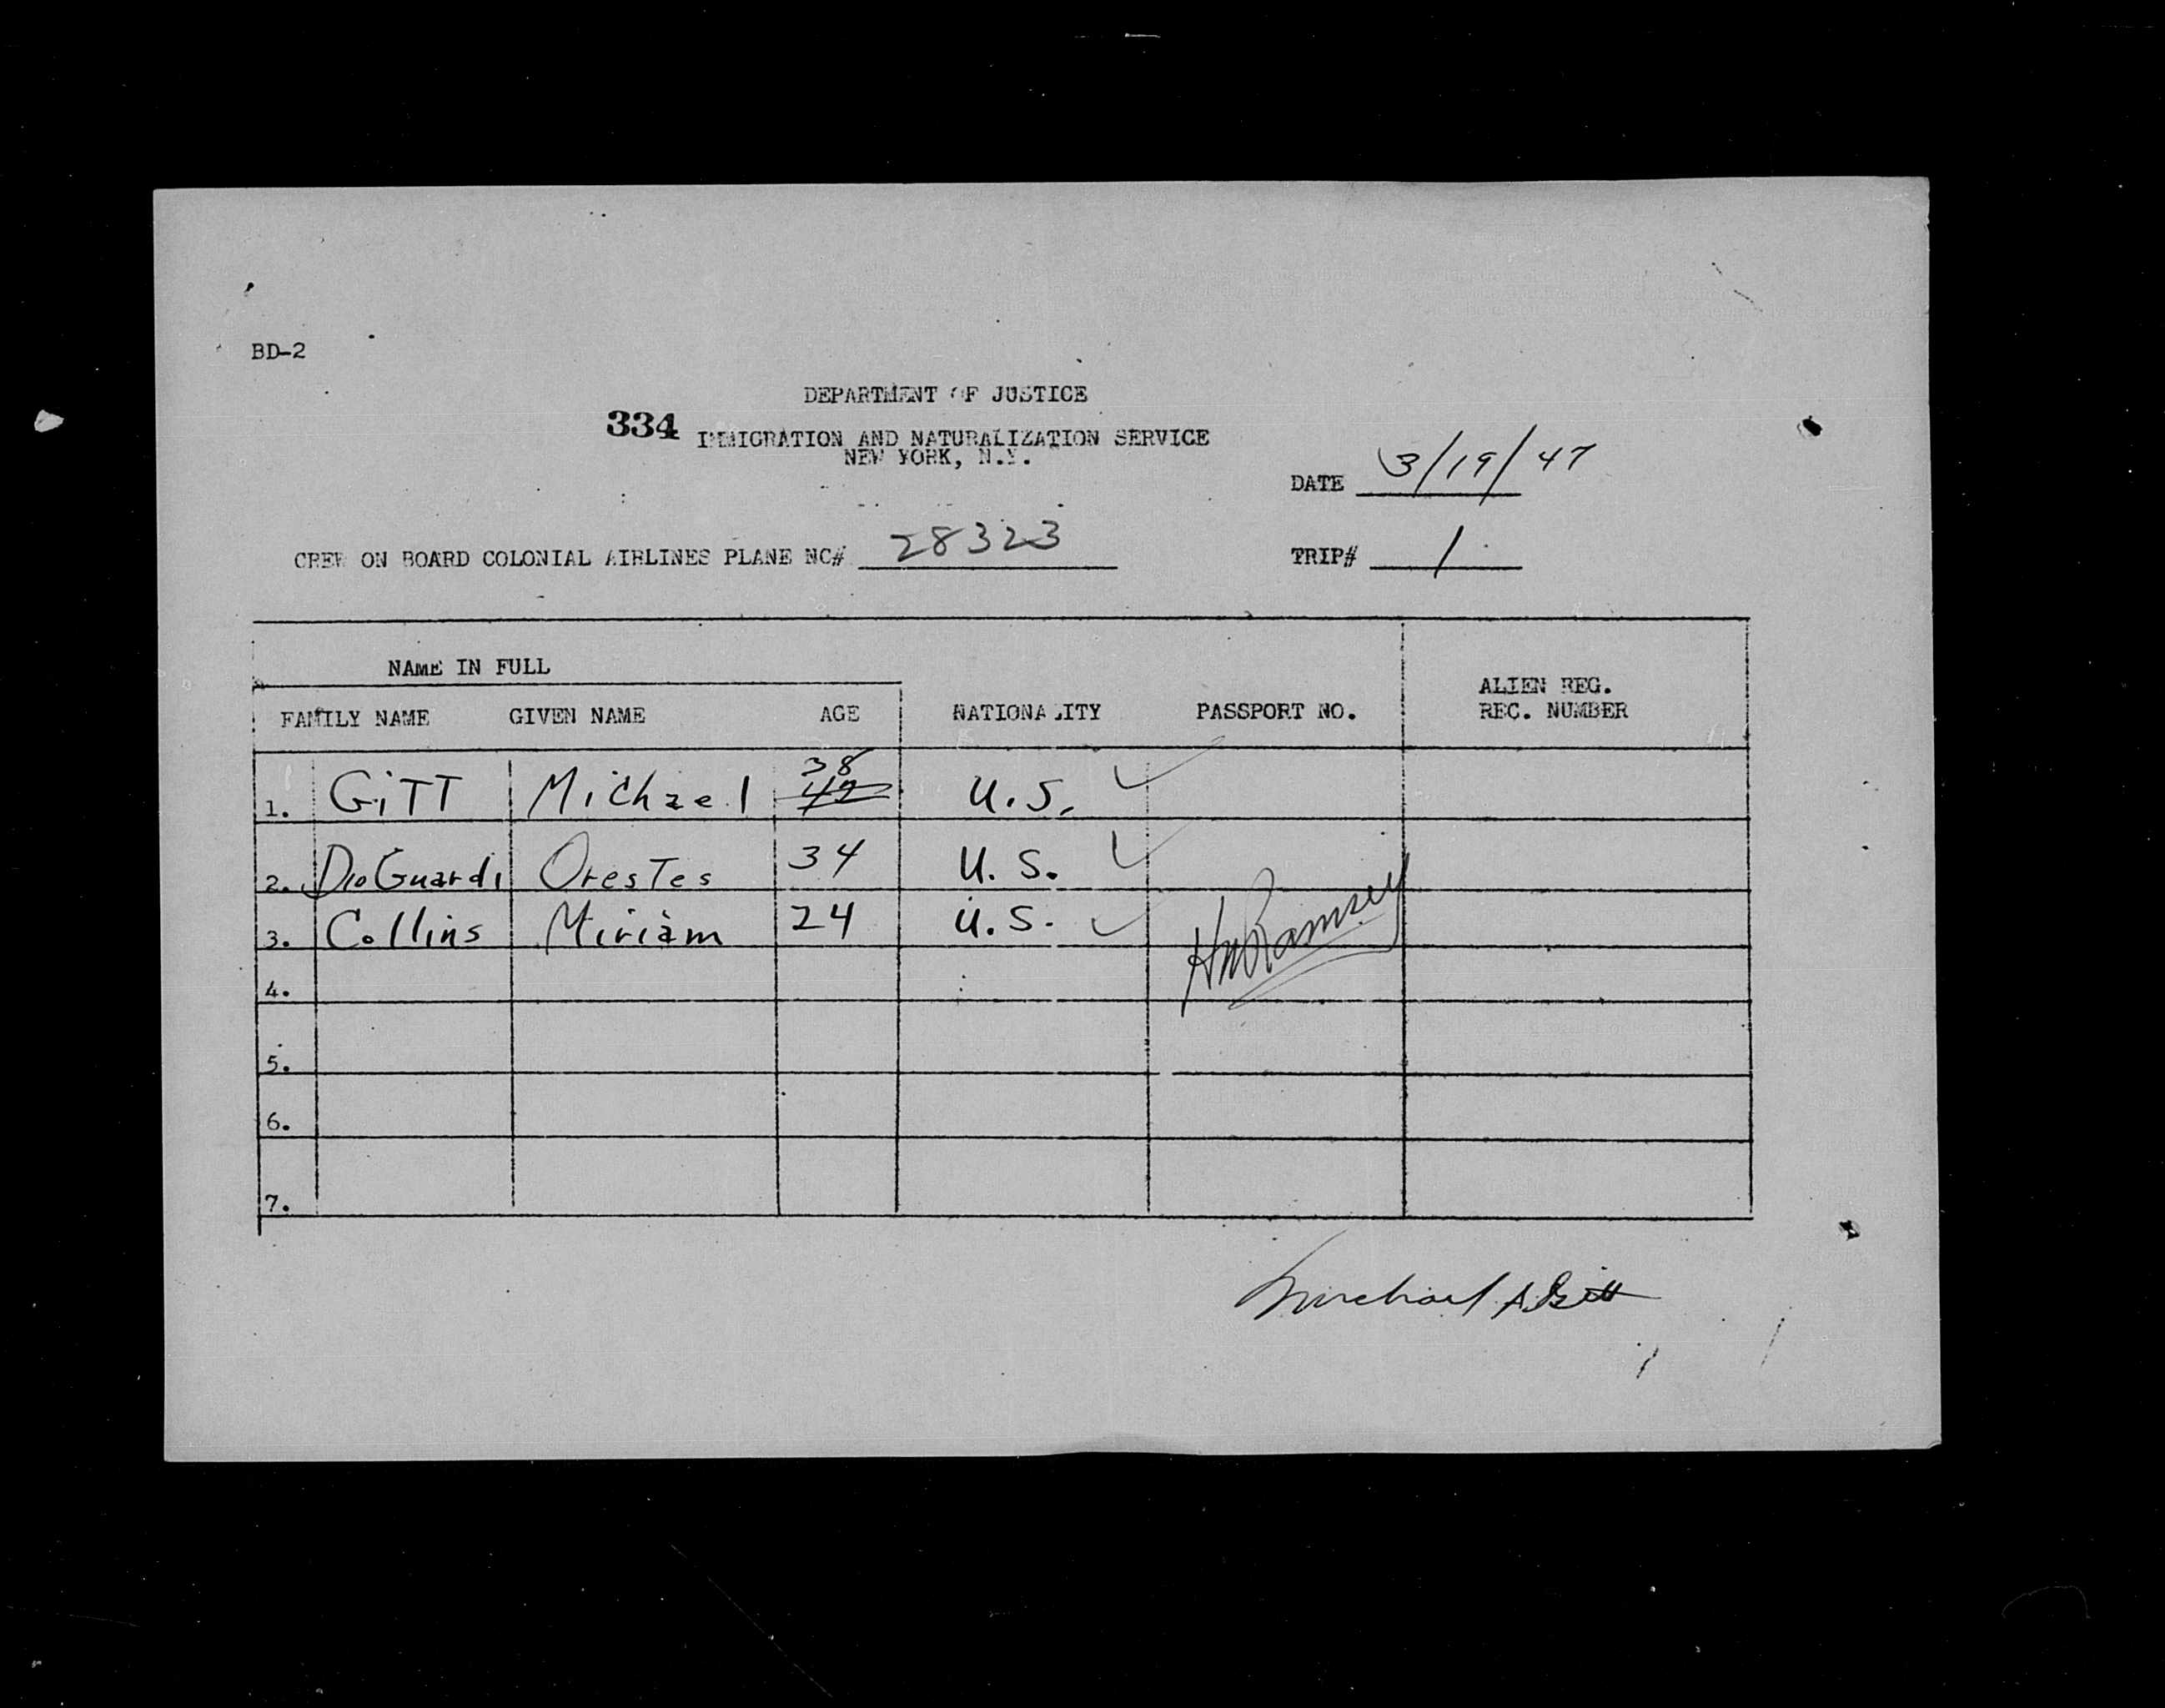 BD-2
DEPARTMENT OF JUSTICE
334 IMMIGRATION AND NATURALIZATION SERVICE
NEW YORK, N.Y.
DATE 3/19/47
CREW ON BOARD COLONIAL AIRLINES PLANE NC# 28323 TRIP# 1
NAME IN FULL
ALIEN REG.
FAMILY NAME GIVEN NAME AGE NATIONALITY PASSPORT NO. REC. NUMBER
38
1. GiTT Michael U.S. ✓
2. DioGuardi OresTes 34 U.S. ✓
3. Collins Miriam 24 U.S. ✓
Ramsey
4.
5.
6.
7.
Michael A Gitt